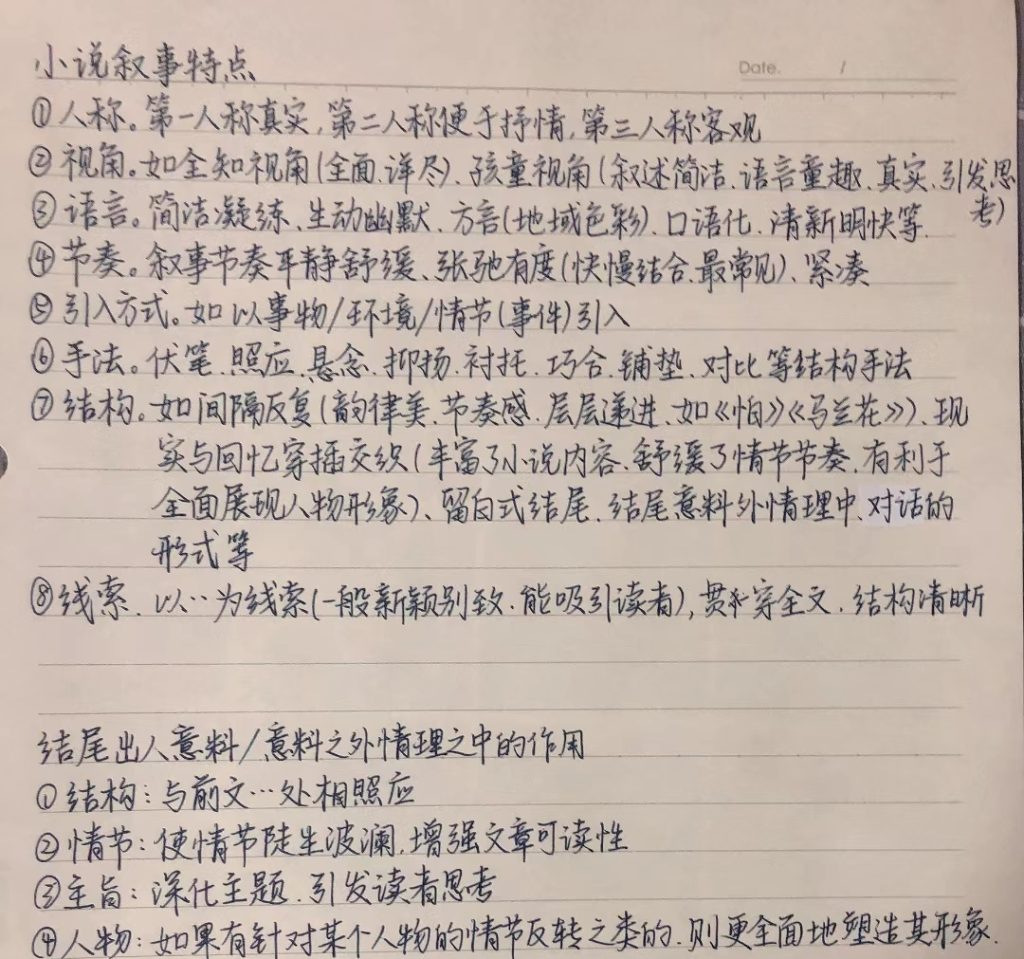 小说叙事特点
Date. /
①人称。第一人称真实,第二人称便于抒情,第三人称客观
②视角。如全知视角(全面、详尽)、孩童视角(叙述简洁、语言童趣、真实、引发思考)
③语言。简洁凝练、生动幽默、方言(地域色彩)、口语化、清新明快等.
④节奏。叙事节奏平静舒缓、张驰有度(快慢结合、最常见)、紧凑
⑤引入方式。如以事物/环境/情节(事件)引入
⑥手法。伏笔、照应、悬念、抑扬、衬托、巧合、铺垫、对比等结构手法
⑦结构。如间隔反复(韵律美、节奏感、层层递进、如《怕》《马兰花》)、现
实与回忆穿插交织(丰富了小说内容、舒缓了情节节奏、有利于
全面展现人物形象)、留白式结尾、结尾意料外情理中、对话的
形式等
⑧线索、以…为线索(一般新颖别致、能吸引读者),贯穿全文、结构清晰
结尾出人意料/意料之外情理之中的作用
①结构:与前文…处相照应
②情节:使情节陡生波澜、增强文章可读性
③主旨:深化主题、引发读者思考
④人物:如果有针对某个人物的情节反转之类的、则更全面地塑造其形象.